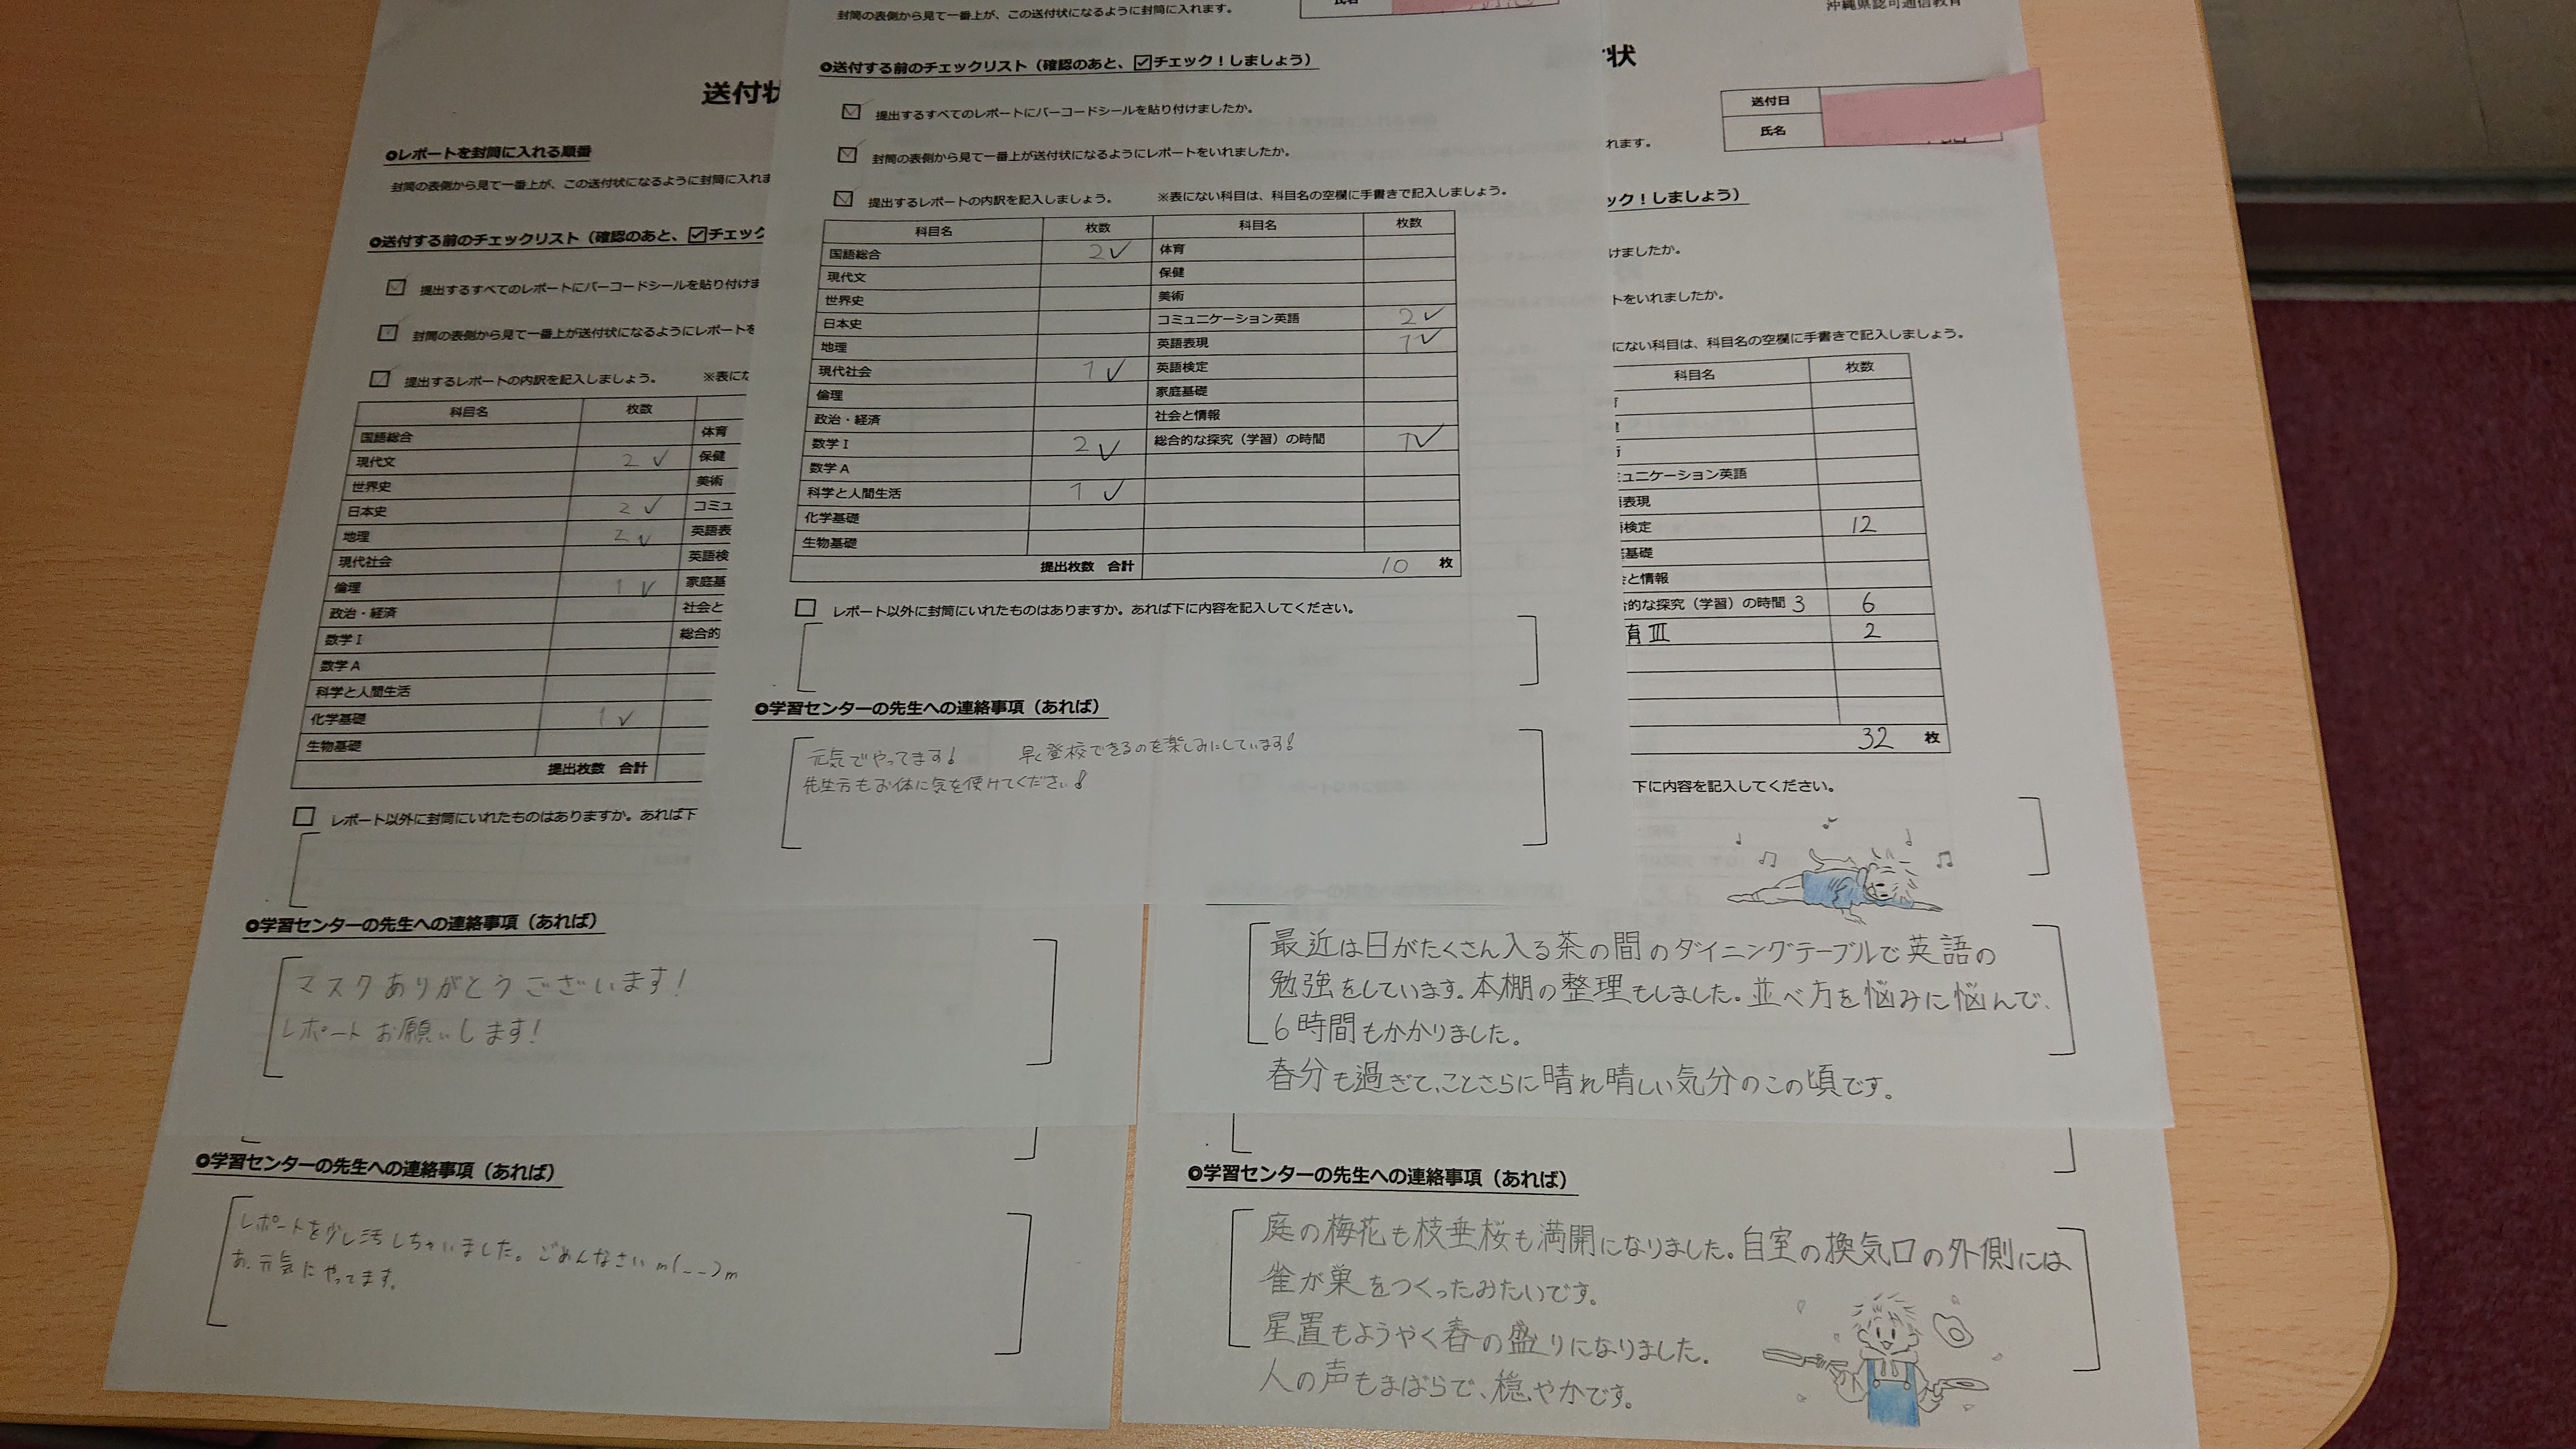 送付状
◎レポートを封筒に入れる順番
封筒の表側から見て一番上が、この送付状になるように封筒に入れま
◎送付する前のチェックリスト（確認のあと、☑チェック
提出するすべてのレポートにバーコードシールを貼り付けま
封筒の表側から見て一番上が送付状になるようにレポートを
提出するレポートの内訳を記入しましょう。 ※表にな
科目名 枚数
国語総合 体育
現代文 2 ✓ 保健
世界史 美術
日本史 2 ✓ コミュ
地理 2 ✓ 英語表
現代社会 英語検
倫理 1 ✓ 家庭基
政治・経済 社会と
数学Ⅰ 総合的
数学A
科学と人間生活
化学基礎 1 ✓
生物基礎
提出枚数 合計
レポート以外に封筒にいれたものはありますか。あれば下
◎学習センターの先生への連絡事項（あれば）
マスクありがとうございます!
レポートお願いします!
◎学習センターの先生への連絡事項（あれば）
レポートを少し汚しちゃいました。ごめんなさいm(__)m
あ、元気にやってます。
封筒の表側から見て一番上が、この送付状になるように封筒に入れます。
氏名
◎送付する前のチェックリスト（確認のあと、☑チェック！しましょう）
提出するすべてのレポートにバーコードシールを貼り付けましたか。
封筒の表側から見て一番上が送付状になるようにレポートをいれましたか。
提出するレポートの内訳を記入しましょう。 ※表にない科目は、科目名の空欄に手書きで記入しましょう。
科目名 枚数 科目名 枚数
国語総合 2 ✓ 体育
現代文 保健
世界史 美術
日本史 コミュニケーション英語 2 ✓
地理 英語表現 1 ✓
現代社会 1 ✓ 英語検定
倫理 家庭基礎
政治・経済 社会と情報
数学Ⅰ 2 ✓ 総合的な探究（学習）の時間 1 ✓
数学A
科学と人間生活 1 ✓
化学基礎
生物基礎
提出枚数 合計 10 枚
レポート以外に封筒にいれたものはありますか。あれば下に内容を記入してください。
◎学習センターの先生への連絡事項（あれば）
元気でやってます! 早く登校できるのを楽しみにしています!
先生方もお体に気を使けてください!
沖縄県認可通信教育
状
送付日
氏名
れます。
ック！しましょう）
けましたか。
トをいれましたか。
にない科目は、科目名の空欄に手書きで記入しましょう。
科目名 枚数
ュニケーション英語
表現
検定 12
基礎
と情報
的な探究（学習）の時間 3 6
育Ⅲ 2
32 枚
下に内容を記入してください。
最近は日がたくさん入る茶の間のダイニングテーブルで英語の
勉強をしています。本棚の整理もしました。並べ方を悩みに悩んで、
6時間もかかりました。
春分も過ぎて、ことさらに晴れ晴れしい気分のこの頃です。
◎学習センターの先生への連絡事項（あれば）
庭の梅花も枝垂桜も満開になりました。自室の換気口の外側には
雀が巣をつくったみたいです。
星置もようやく春の盛りになりました。
人の声もまばらで、穏やかです。